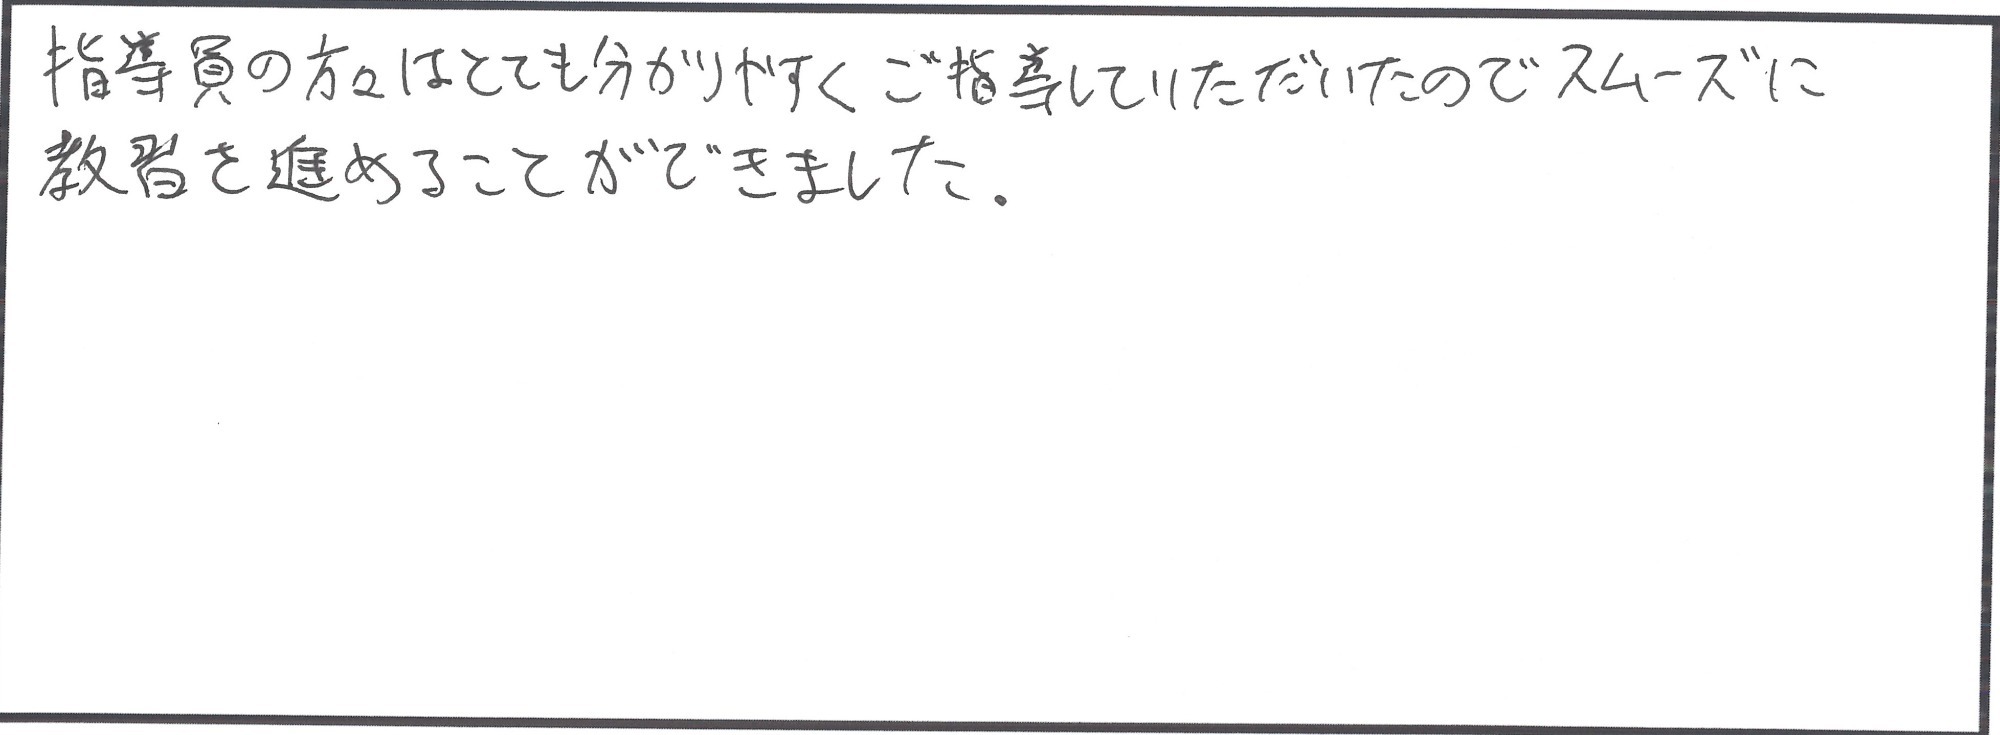 指導員の方々はとても分かりやすくご指導していただいたのでスムーズに
教習を進めることができました.